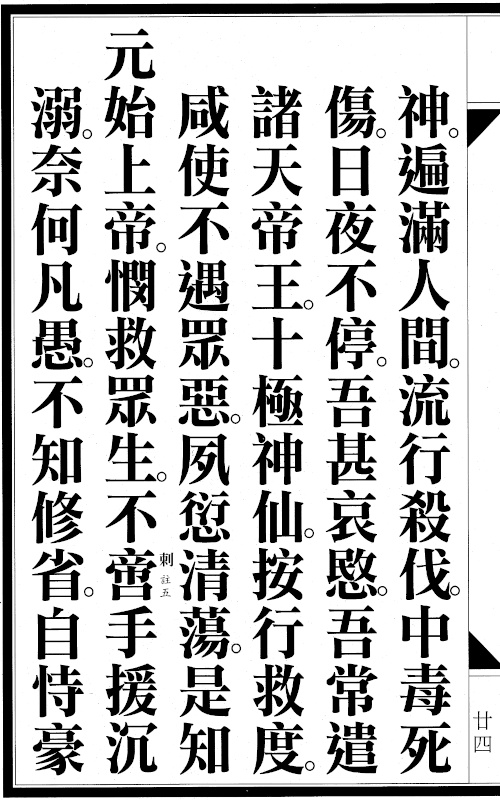 神。遍滿人間。流行殺伐。中毒死
傷。日夜不停。吾甚哀愍。吾常遣
諸天帝王。十極神仙。按行救度。
咸使不遇眾惡。夙愆清蕩。是知
元始上帝。憫救眾生。不啻手援沉
刺註五
溺。奈何凡愚。不知修省。自恃豪
廿四